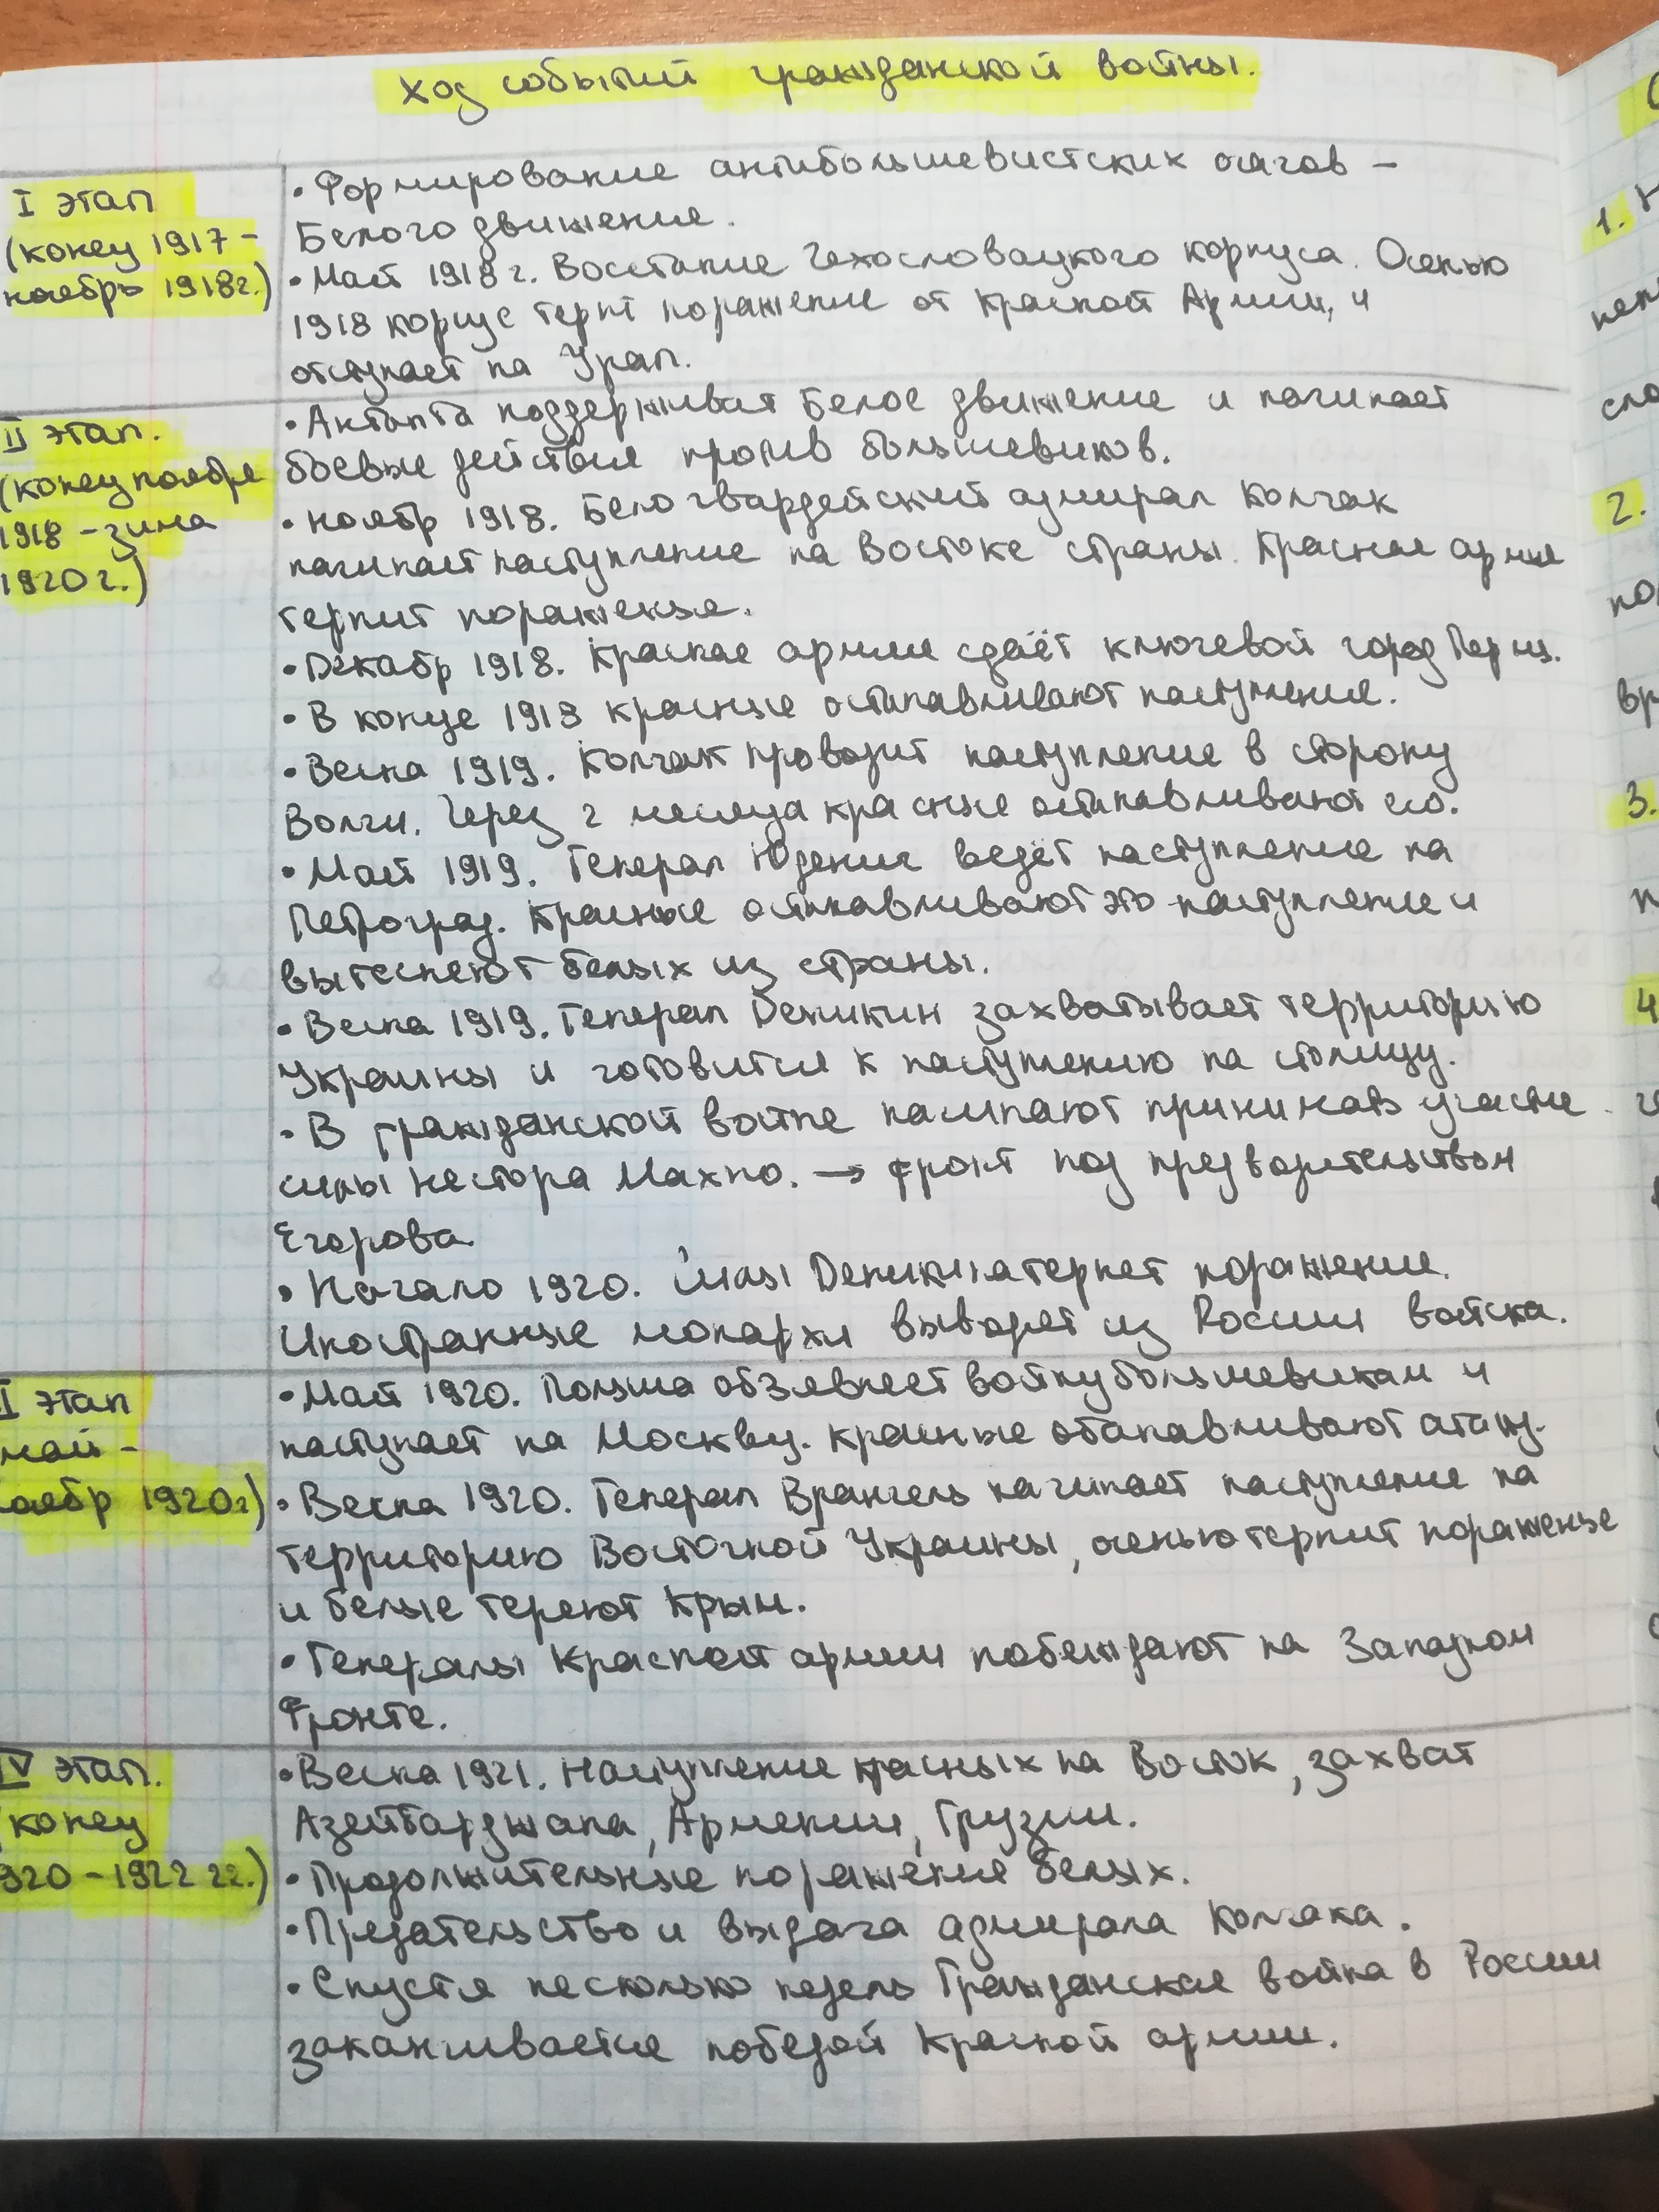 Ход событий гражданской войны.
I этап
(конец 1917 -
ноябрь 1918г.)
• Формирование антибольшевистских очагов -
Белого движение.
• Май 1918 г. Восстание Чехословацкого корпуса. Осенью
1918 корпус терпит поражение от Красной Армии, и
отступает на Урал.
II этап.
(конец ноября
1918 - зима
1920 г.)
• Антанта поддерживая Белое движение и начинает
боевые действия против большевиков.
• Ноябрь 1918. Белогвардейский адмирал Колчак
начинает наступление на Востоке страны. Красная армия
терпит пораженье.
• Декабрь 1918. Красная армия сдаёт ключевой город Пермь.
• В конце 1918 красные останавливают наступление.
• Весна 1919. Колчак проводит наступление в сторону
Волги. Через 2 месяца красные останавливают его.
• Май 1919. Генерал Юденич ведёт наступление на
Петроград. Красные останавливают это наступление и
вытесняют белых из страны.
• Весна 1919. Генерал Деникин захватывает территорию
Украины и готовится к наступлению на столицу.
• В гражданской войне начинают принимать участие
силы Нестора Махно. → фронт под предводительством
Егорова.
• Начало 1920. Силы Деникина терпят поражение.
Иностранные монархи выводят из России войска.
I этап
май -
оябрь 1920г)
• Май 1920. Польша объявляет войну большевикам и
наступает на Москву. Красные останавливают атаку.
• Весна 1920. Генерал Врангель начинает наступление на
территорию Восточной Украины, осенью терпит пораженье
и белые теряют Крым.
• Генералы Красной армии побеждают на Западном
Фронте.
IV этап.
(конец
920 - 1922 гг.)
• Весна 1921. Наступление красных на Восток, захват
Азейбарджана, Армении, Грузии.
• Продолжительные поражение белых.
• Предательство и выдача адмирала Колчака.
• Спустя несколько недель Гражданская война в России
заканчивается победой Красной армии.
1.
2.
3.
4